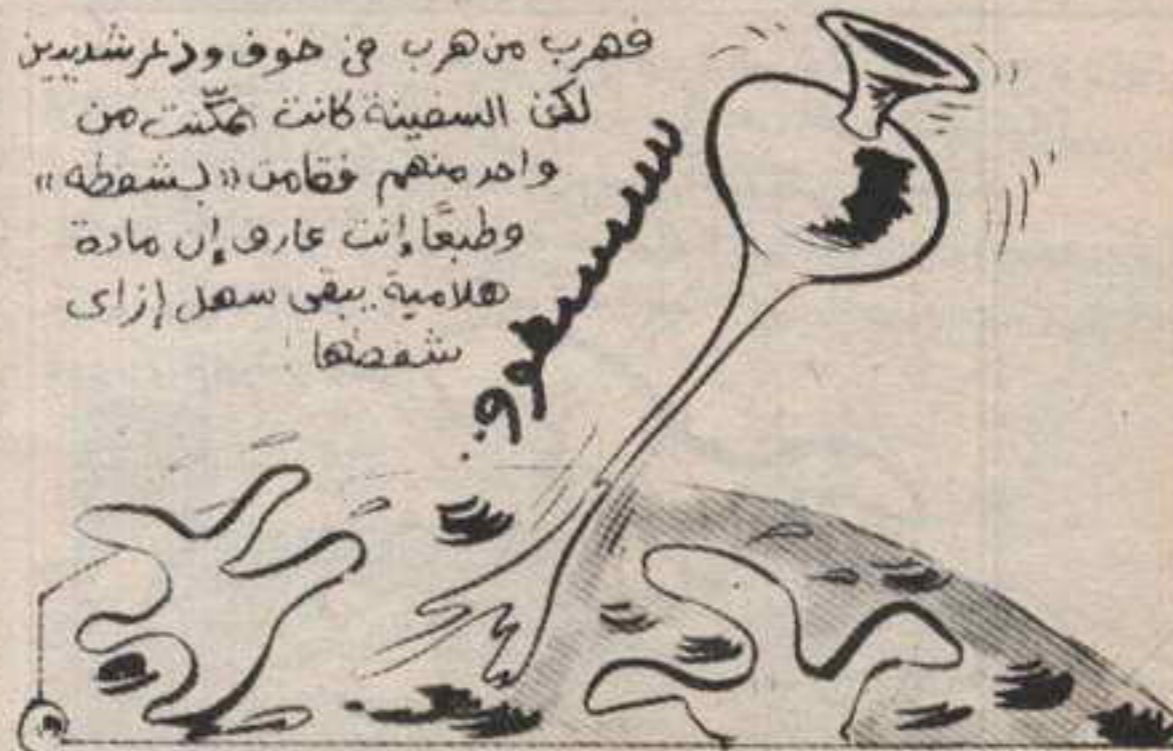 فهرب من هرب فى خوف وذعر شديدين
لكن السفينة كانت تمكّنت من
واحد منهم فقامت «بشفطه»
وطبعًا إنت عارف إن مادة
هلامية بيبقى سهل إزاى
شفطها!
سسسسسوف